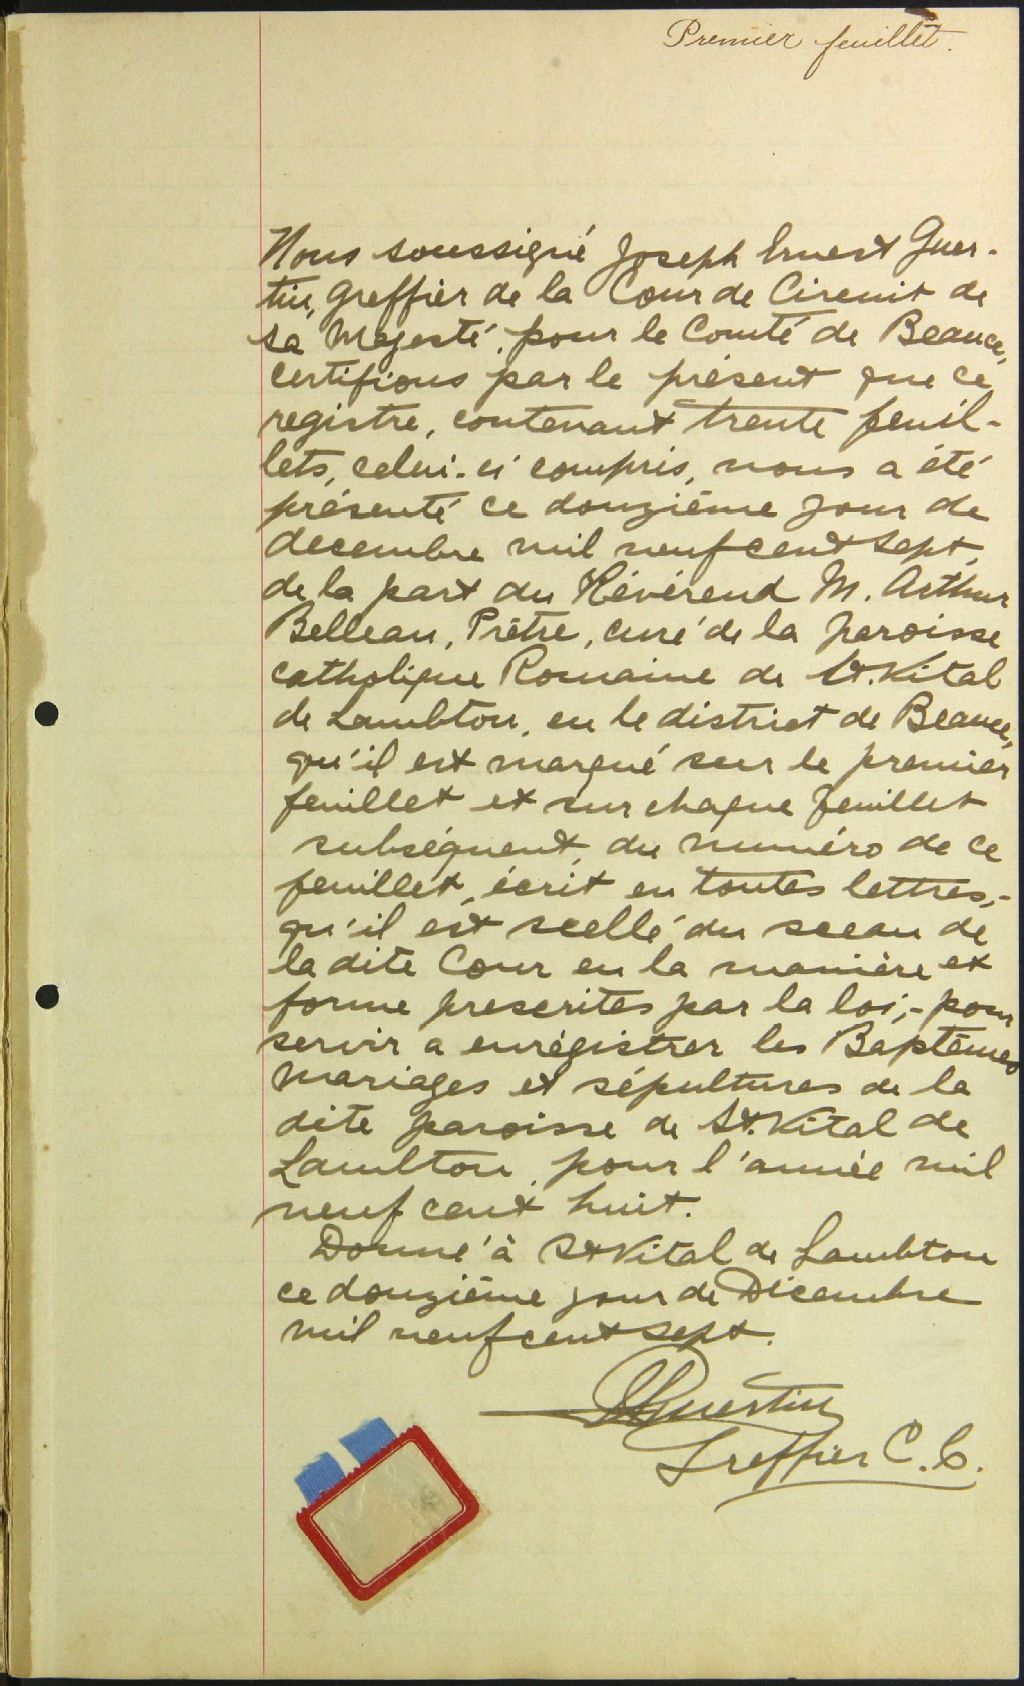 Premier feuillet.
Nous soussigné Joseph Ernest Guer-
tin, Greffier de la Cour de Circuit de
sa Majesté, pour le Comté de Beauce,
certifions par le présent que ce
registre, contenant trente feuil-
lets, celui-ci compris, nous a été
présenté ce douzième jour de
decembre mil neuf cent sept,
de la part du Révérend M. Arthur
Belleau, Prêtre, curé de la paroisse
catholique Romaine de St. Vital
de Lambton, en le district de Beauce,
qu'il est marqué sur le premier
feuillet et sur chaque feuillet
subséquent, du numéro de ce
feuillet, écrit en toutes lettres,-
qu'il est scellé du sceau de
la dite Cour en la manière et
forme prescrites par la loi;- pour
servir a enrégistrer les Baptêmes
Mariages et sépultures de la
dite paroisse de St. Vital de
Lambton, pour l'année mil
neuf cent huit.
Donné à St Vital de Lambton
ce douzième jour de Décembre
mil neuf cent sept.
Guertin
Greffier C. C.